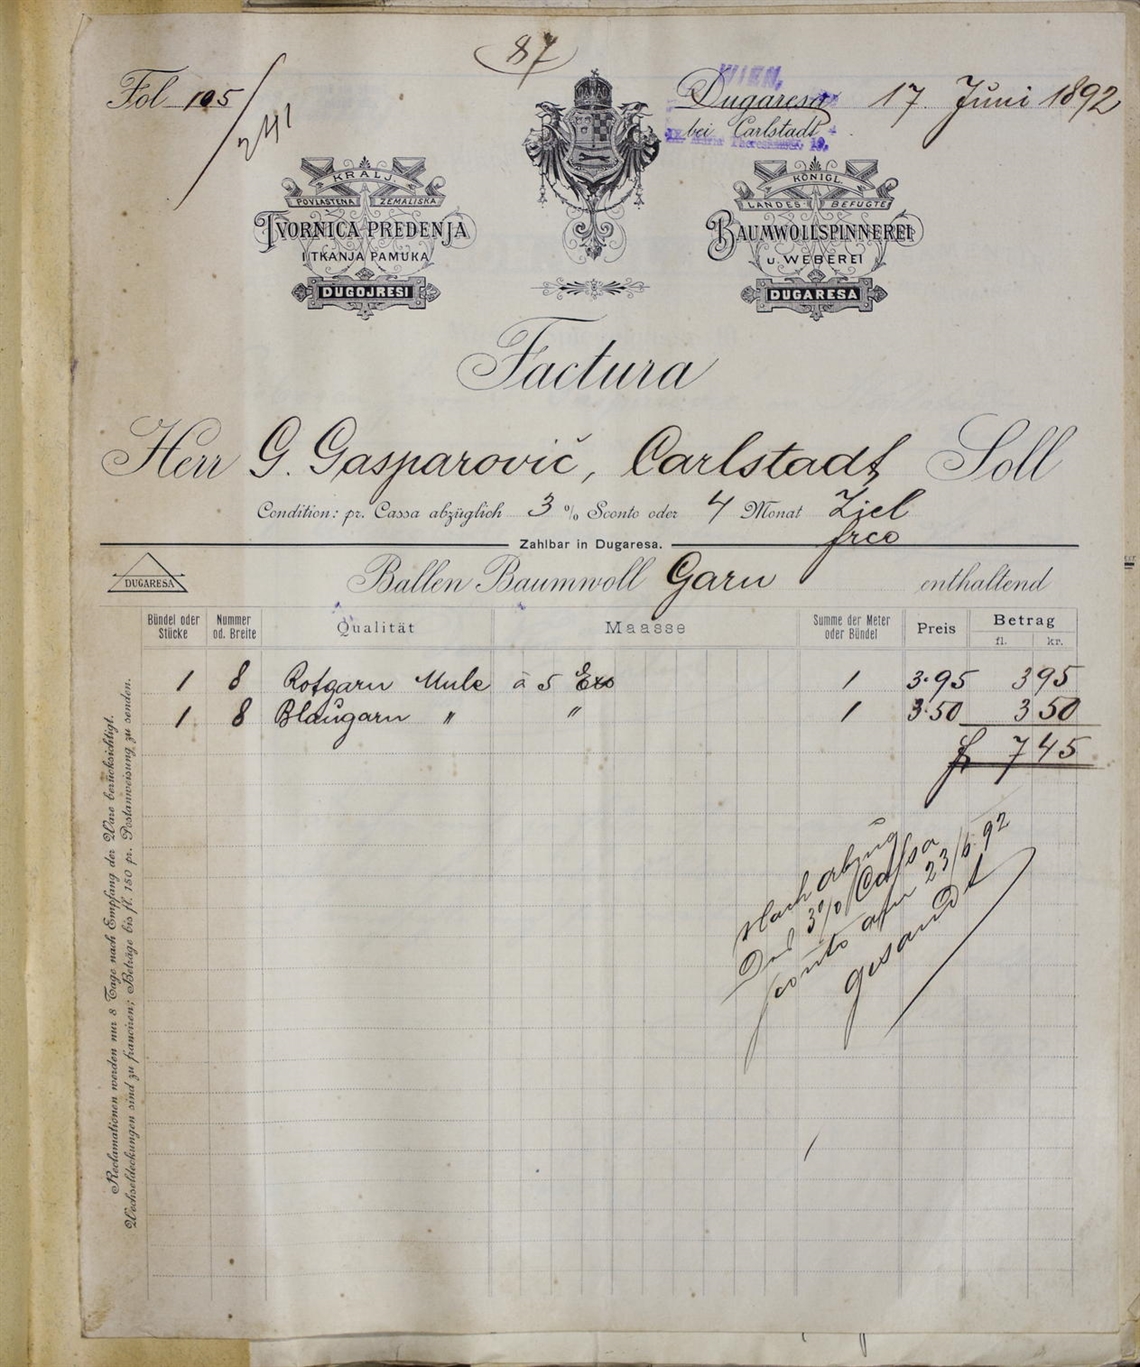 87
Fol 105
241
WIEN,
Dugaresa 17. Juni 1892
bei Carlstadt
IX. Maria Theresienstr. 19.
KRALJ.
POVLAŠTENA ZEMALJSKA
TVORNICA PREDENJA
I TKANJA PAMUKA
DUGOJRESI
KÖNIGL.
LANDES- BEFUGTE
BAUMWOLLSPINNEREI
U. WEBEREI
DUGARESA
Factura
Herr G. Gasparovič, Carlstadt Soll
Condition: pr. Cassa abzüglich 3 % Sconto oder 4 Monat Ziel
frco
Zahlbar in Dugaresa.
DUGARESA
Ballen Baumwoll Garn enthaltend
Bündel oder Stücke Nummer od. Breite Qualität Maasse Summe der Meter oder Bündel Preis Betrag
fl. kr.
1 8 Rotgarn Mule à 5 1 3·95 3 95
1 8 Blaugarn " " 1 3·50 3 50
fl 7 45
Nach abzug
3% Cassa
sconto am 23/6 92
gesandt
Reclamationen werden nur 8 Tage nach Empfang der Ware berücksichtigt.
Wechseldeckungen sind zu franciren; Beträge bis fl. 150 pr. Postanweisung zu senden.